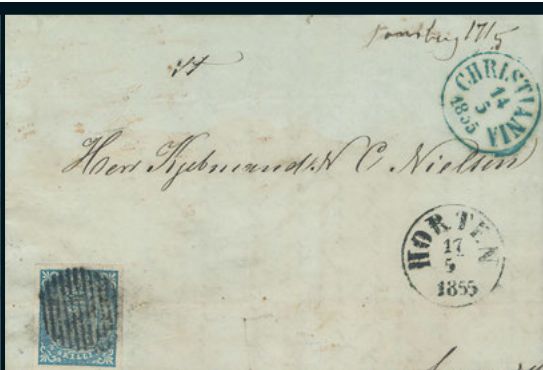 Tonsberg 17/5
CHRISTIANIA
14
5
1855
Herr Kjøbmand N C Nielsen
HORTEN
17
5
1855
SKILL